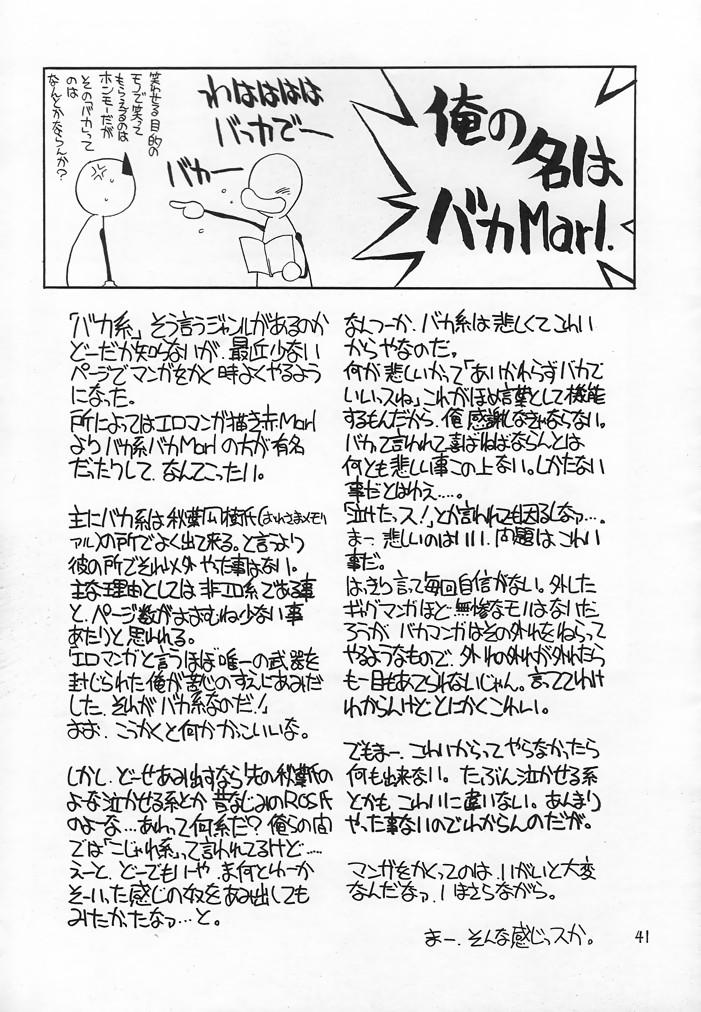 俺の
名は
バカMarl.
わはははは
バッカでー
バカー
笑わせる目的の
モノで笑って
もらえるのは
ホンモーだが
その「バカ」って
のは
なんとかならんか？
「バカ系」そう言うジャンルがあるのか
どーだか知らないが、最近少ない
ページでマンガをかく時よくやるよう
になった。
所によってはエロマンガ描き赤Marl
よりバカ系バカMarlの方が有名
だったりして、なんてこったい。
主にバカ系は秋葉凪樹氏(おれさまメモリ
アル)の所でよく出て来る。と言うより
彼の所でそれ以外やった事はない。
主な理由としては非エロ系である事
と、ページ数がおおむね少ない事
あたりと思われる。
「エロマンガと言うほぼ唯一の武器を
封じられた俺が苦心のすえにあみだ
した、それがバカ系なのだ！」
おお、こうかくと何かかっこいいな。
しかし、どーせあみ出すなら先の秋葉氏の
よーな泣かせる系とか昔なじみのROS氏
のよーな…あれって何系だ？俺らの間
では「こじゃれ系」って言われてるけど……
えーと、どーでもいいや、ま何とゆーか
そーいった感じの奴をあみ出しても
みたかったなァ…と。
なんつーか、バカ系は悲しくてこわい
からやなのだ。
何が悲しいかって「あいかわらずバカで
いいっスね」これがほめ言葉として機能
するもんだから、俺感謝しなきゃならない。
バカって言われて喜ばねばならんとは
何とも悲しい事この上ない。しかたない
事だとはゆえ……。
「泣けたっス！」とか言われても困るしなァ…。
まー、悲しいのはいい、問題は、こわい
事だ。
はっきり言って毎回自信がない。外した
ギャグマンガほど無惨なモノはないだ
ろうが、バカマンガはその外れをねらって
やるようなもので、外れの外れが外れたら
も一目もあてられないじゃん。言っててわけ
わからんけどとにかくこわい。
でもまー、こわいからってやらなかったら
何も出来ない。たぶん泣かせる系
とかも、こわいに違いない。あんまり
やった事ないのでわからんのだが。
マンガをかくってのは、いがいと大変
なんだなァ、いまさらながら。
まー、そんな感じっスか。
41